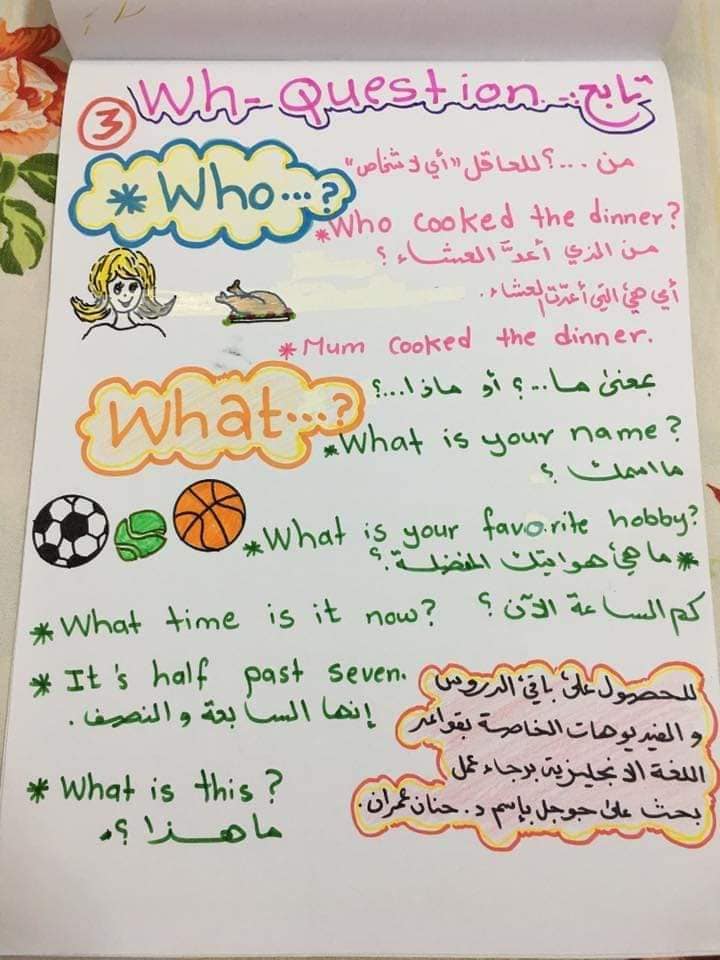 Wh- Question .. تابع
3
* Who...?
من ...؟ للعاقل "أي لأشخاص"
* Who cooked the dinner?
من الذي أعدَّ العشاء ؟
أي هي التي أعدّت العشاء.
* Mum cooked the dinner.
What...?
بمعنى ما...؟ أو ماذا...؟
* What is your name?
ما اسمك ؟
* What is your favorite hobby?
* ما هي هوايتك المفضلة ؟
* What time is it now? كم الساعة الآن ؟
* It's half past seven.
إنها السابعة والنصف .
* What is this?
ما هذا ؟
للحصول على باقي الدروس
و الفيديوهات الخاصة بقواعد
اللغة الانجليزية برجاء عمل
بحث على جوجل بإسم د. حنان عمران.